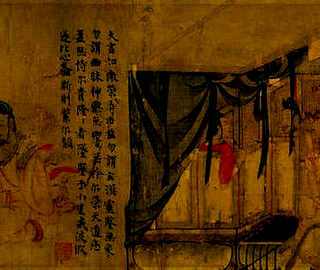 夫言如微榮辱由茲勿謂玄漠靈鑒無象
勿謂幽昧神聽無響無矜爾榮天道惡盈
無恃爾貴隆隆者墜鑒于小星戒彼攸
遂比心螽斯則繁爾類